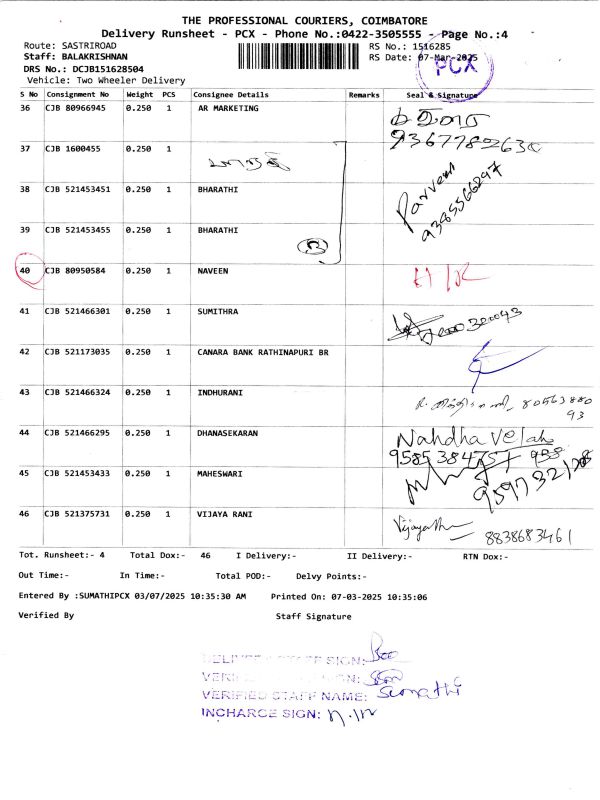 THE PROFESSIONAL COURIERS, COIMBATORE
Delivery Runsheet - PCX - Phone No.:0422-3505555 - Page No.:4
Route: SASTRIROAD
RS No.: 1516285
Staff: BALAKRISHNAN
RS Date: 07-Mar-2025
DRS No.: DCJB151628504
PCX
Vehicle: Two Wheeler Delivery
S No Consignment No Weight PCS Consignee Details Remarks Seal & Signature
36 CJB 80966945 0.250 1 AR MARKETING
37 CJB 1600455 0.250 1
38 CJB 521453451 0.250 1 BHARATHI Parveen
9385566297
39 CJB 521453455 0.250 1 BHARATHI
40 CJB 80950584 0.250 1 NAVEEN
41 CJB 521466301 0.250 1 SUMITHRA
42 CJB 521173035 0.250 1 CANARA BANK RATHINAPURI BR
43 CJB 521466324 0.250 1 INDHURANI 80563880
93
44 CJB 521466295 0.250 1 DHANASEKARAN Nandha
45 CJB 521453433 0.250 1 MAHESWARI
46 CJB 521375731 0.250 1 VIJAYA RANI 8838683461
Tot. Runsheet:- 4 Total Dox:- 46 I Delivery:- II Delivery:- RTN Dox:-
Out Time:- In Time:- Total POD:- Delvy Points:-
Entered By :SUMATHIPCX 03/07/2025 10:35:30 AM Printed On: 07-03-2025 10:35:06
Verified By Staff Signature
SIGN:
SIGN:
VERIFIED STAFF NAME: Sumathi
INCHARGE SIGN: